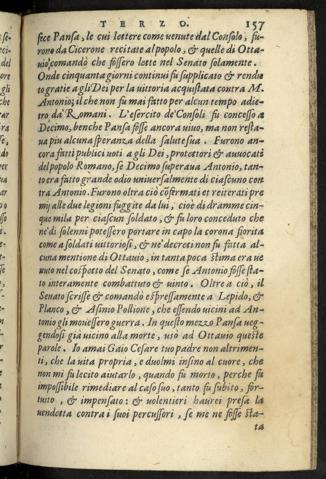 TERZO. 157
fice Pansa, le cui lettere come venute dal Consolo, fu-
rono da Cicerone recitate al popolo, & quelle di Otta-
uio comandò che fossero lotte nel Senato solamente.
Onde cinquanta giorni continui fu supplicato & rendu
to gratie a gli Dei per la uittoria acquistata contra M.
Antonio; il che non fu mai fatto per alcun tempo adie-
tro da Romani. L'esercito de' Consoli fu concesso a
Decimo, benche Pansa fosse ancora uiuo, ma non resta-
ua piu alcuna speranza della salute sua. Furono an-
cora fatti publici uoti a gli Dei, Protettori & auuocati
del popolo Romano, se Decimo superaua Antonio, tan-
to era fatto grande odio uniuersalmente di ciascuno con
tra Antonio. Furono oltra ciò cõfermati et reiterati pre
mij alle due legioni fuggite da lui, cioè di dramme cin-
que mila per ciascun soldato, & fu loro conceduto che
ne' di solenni potessero portare in capo la corona fiorita
come a soldati uittoriosi, & ne' decreti non fu fatta al-
cuna mentione di Ottauio, in tanta poca stima era ue
nuto nel cospetto del Senato, come se Antonio fosse sta-
to interamente combattuto & uinto. Oltre a ciò, il
Senato scrisse & comandò espressamente a Lepido, &
Planco, & Asinio Pollione, che essendo uicini ad An-
tonio gli mouessero guerra. In questo mezzo Pansa ueg-
gendosi già uicino alla morte, usò ad Ottauio queste
parole. Io amai Gaio Cesare tuo padre non altrimen-
ti, che la uita propria, e duolmi insino al cuore, che
non mi fu lecito aiutarlo, quando fu morto, perche fu
impossibile rimediare al caso suo, tanto fu subito, for-
tuito, & impensato: & uolentieri haurei presa la
uendetta contra i suoi percussori, se me ne fosse sta-
ta